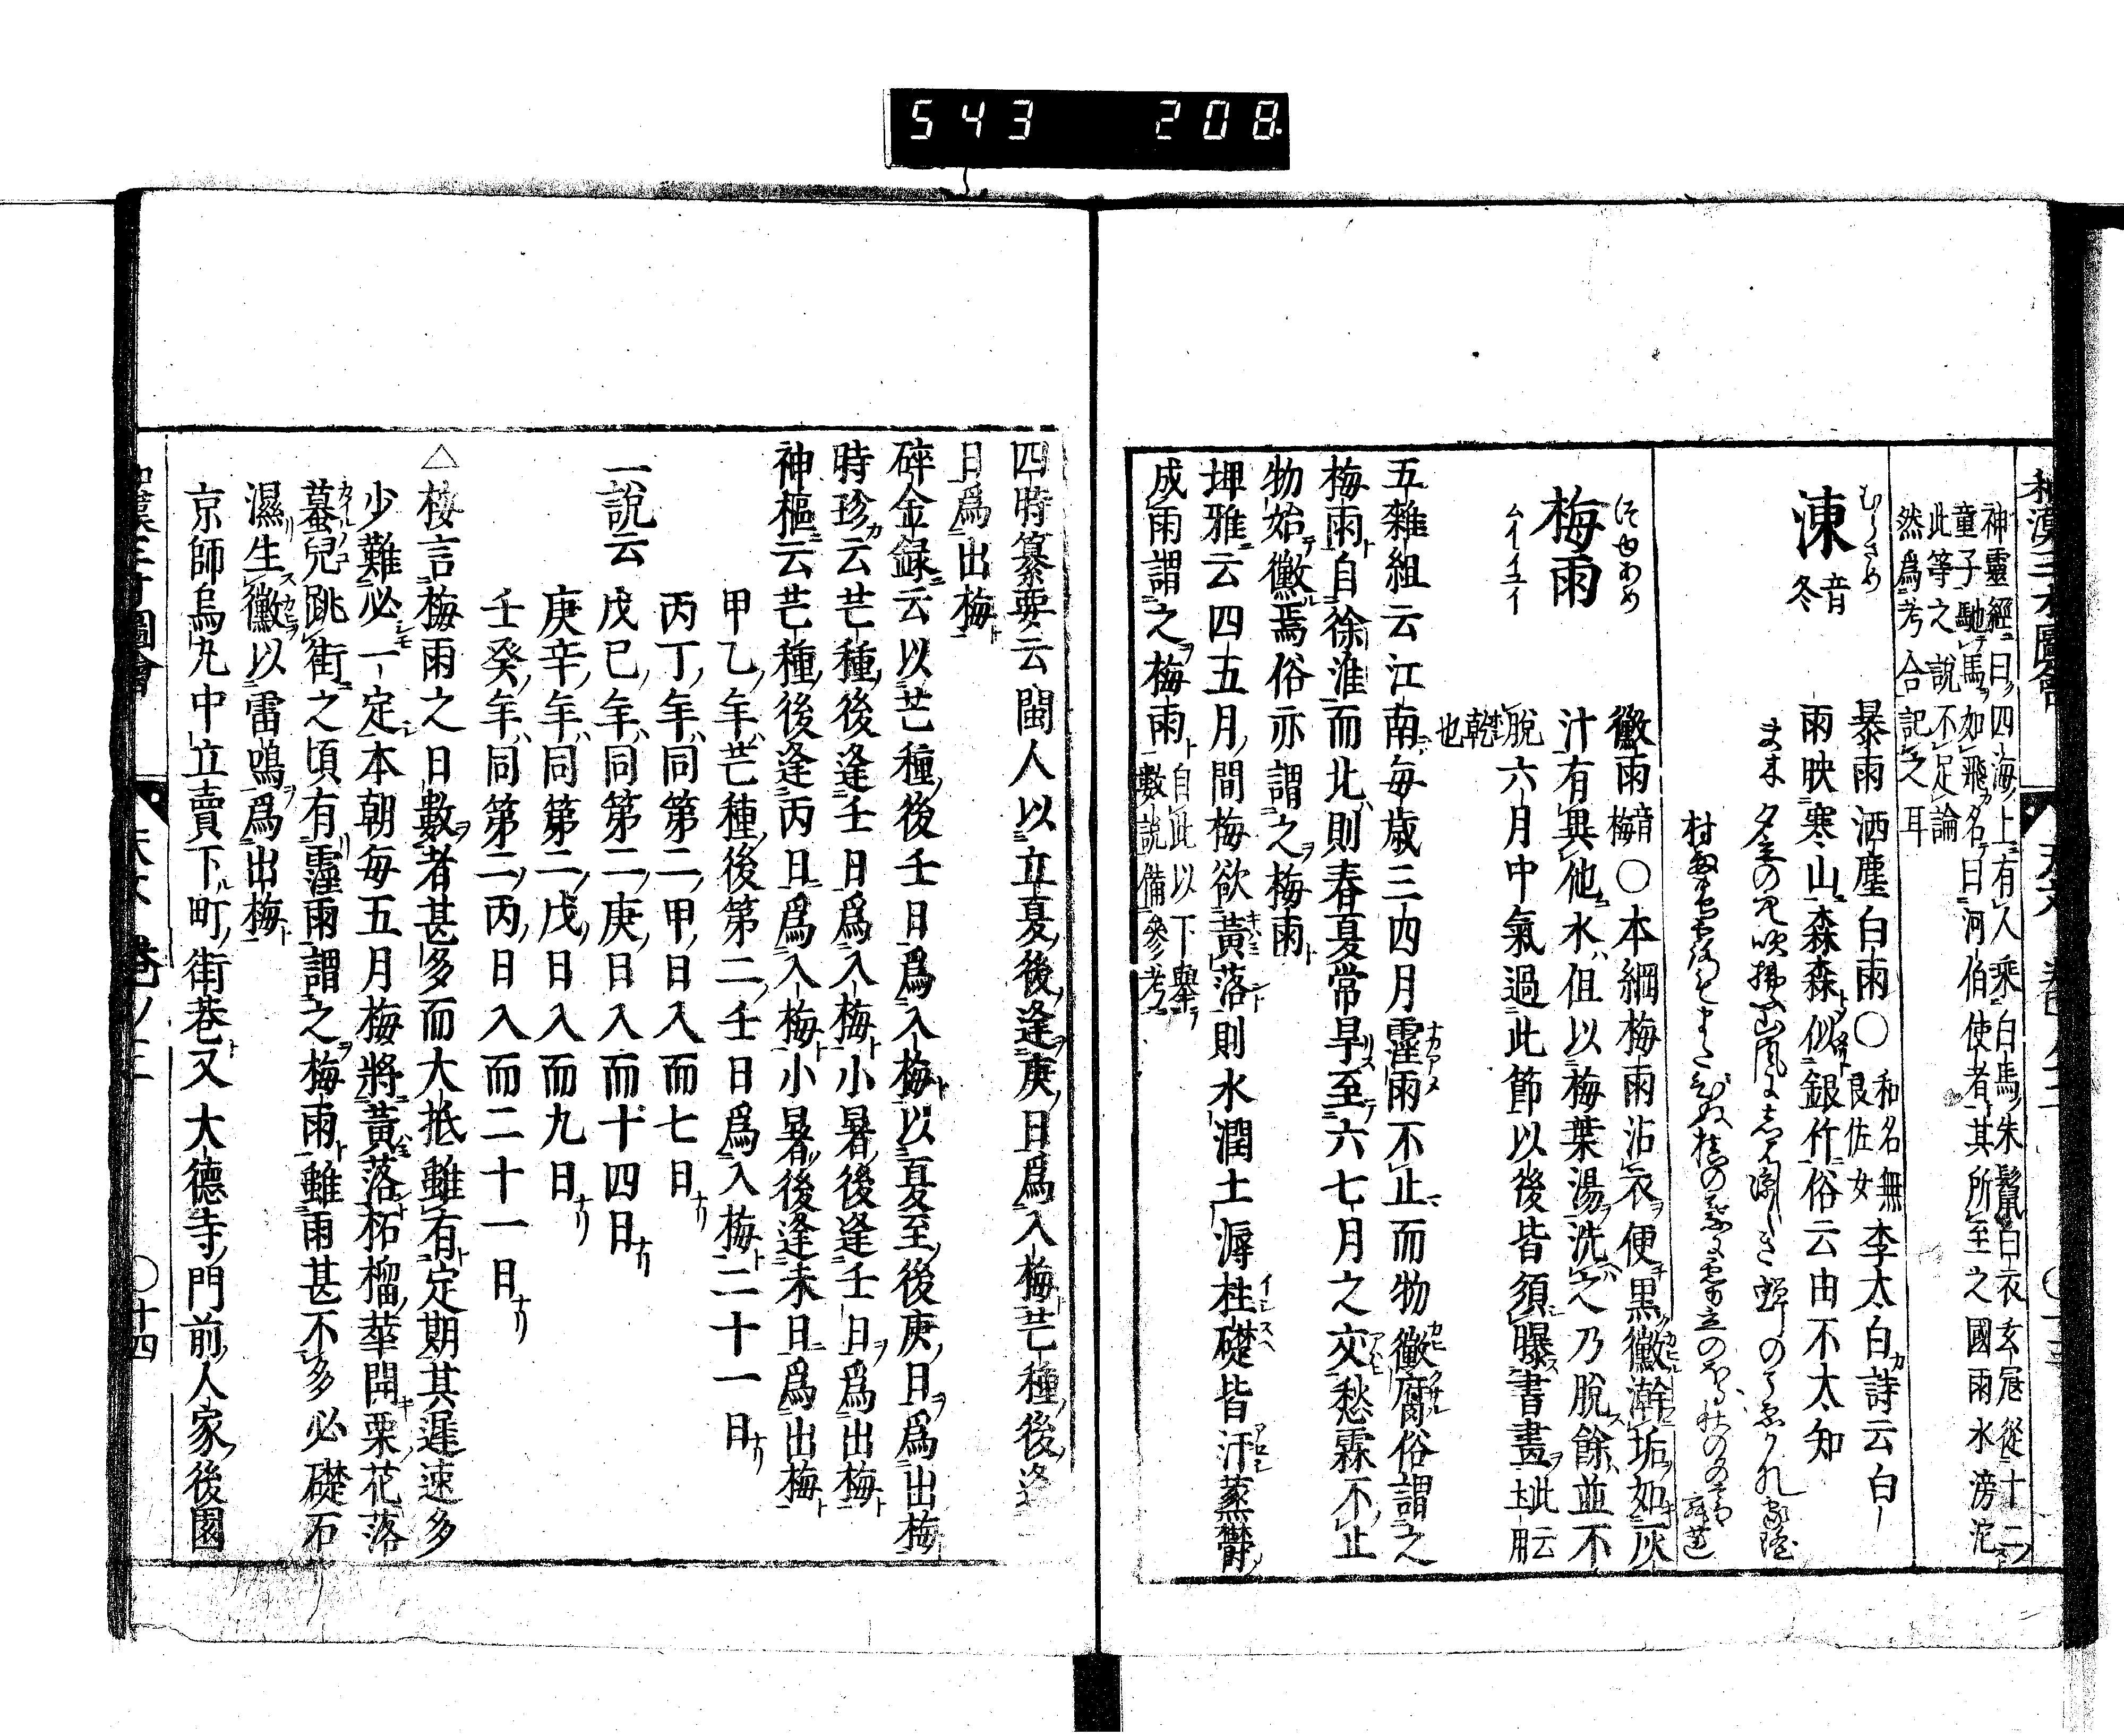 543 208
和漢三才圖會 天文 卷之三 〇十三
神靈經曰四海上有人乘白馬朱鬣白衣玄冠從十二
童子馳馬如飛名曰河伯使者其所至之國雨水滂沱
此等之說不足論
然爲考合記之耳
むらさめ
涷 音冬
暴雨 洒塵 白雨〇和名無良佐女 李太白詩云白
雨映寒山森森似銀竹俗云由不太知
また 夕立の
村雨
寂蓮
つゆあめ
梅雨
ムイ イユイ
黴雨 音梅 〇本綱梅雨沾衣便黒黴澣垢如灰
汁有異他水但以梅葉湯洗之乃脫餘並不
脫 六月中氣過此節以後皆須曝書畫 此云土用乾也
五雜組云江南每歲三四月霪雨不止而物黴腐俗謂之
梅雨自徐淮而北則春夏常旱至六七月之交愁霖不止
物始黴焉俗亦謂之梅雨
埤雅云四五月間梅欲黃落則水潤土溽柱礎皆汗蒸鬱
成雨謂之梅雨 自此以下擧數說備參考
四時纂要云閩人以立夏後逢庚日爲入梅芒種後逢
日爲出梅
碎金録云以芒種後壬日爲入梅以夏至後庚日爲出梅
時珍云芒種後逢壬日爲入梅小暑後逢壬日爲出梅
神樞云芒種後逢丙日爲入梅小暑後逢未日爲出梅
甲乙年芒種後第二壬日爲入梅二十一日ナリ
丙丁年同第二甲日入而七日ナリ
一說云 戊己年同第二庚日入而十四日ナリ
庚辛年同第二戊日入而九日ナリ
壬癸年同第二丙日入而二十一日ナリ
△桉言梅雨之日數者甚多而大抵雖有定期其遲速多
少難必一定本朝每五月梅將黃落柘榴華開栗花落
蟇兒跳街之頃有霪雨謂之梅雨雖雨甚不多必礎石
濕生黴以雷鳴爲出梅
京師烏丸中立賣下町街巷又大德寺門前人家後園
和漢三才圖會 天文 卷ノ三 〇十四